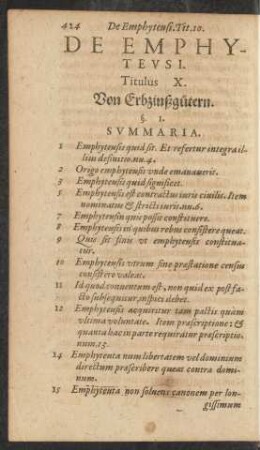 424 De Emphyteusi. Tit. 10.
DE EMPHY-
TEVSI.
Titulus X.
Von Erbzinßgütern.
§. I.
SVMMARIA.
1 Emphyteusis quid sit. Et refertur integra il-
lius definitio. nu. 4.
2 Origo emphyteusis vnde emanauerit.
3 Emphyteusis quid significet.
5 Emphyteusis est contractus iuris ciuilis. Item
nominatus & stricti iuris. nu. 6.
7 Emphyteusin quis possit constituere.
8 Emphyteusis in quibus rebus consistere queat.
9 Quis sit finis vt emphyteusis constitua-
tur.
10 Emphyteusis vtrum sine præstatione census
consistere valeat.
11 Id quod conuentum est, non quid ex post fa-
cto subsequitur, inspici debet.
12 Emphyteusis acquiritur tam pactis quàm
vltima voluntate. Item præscriptione: &
quanta hac in parte requiratur præscriptio.
num. 13.
14 Emphyteuta num libertatem vel dominium
directum præscribere queat contra domi-
num.
15 Emphyteuta non soluens canonem per lon-
gissimum